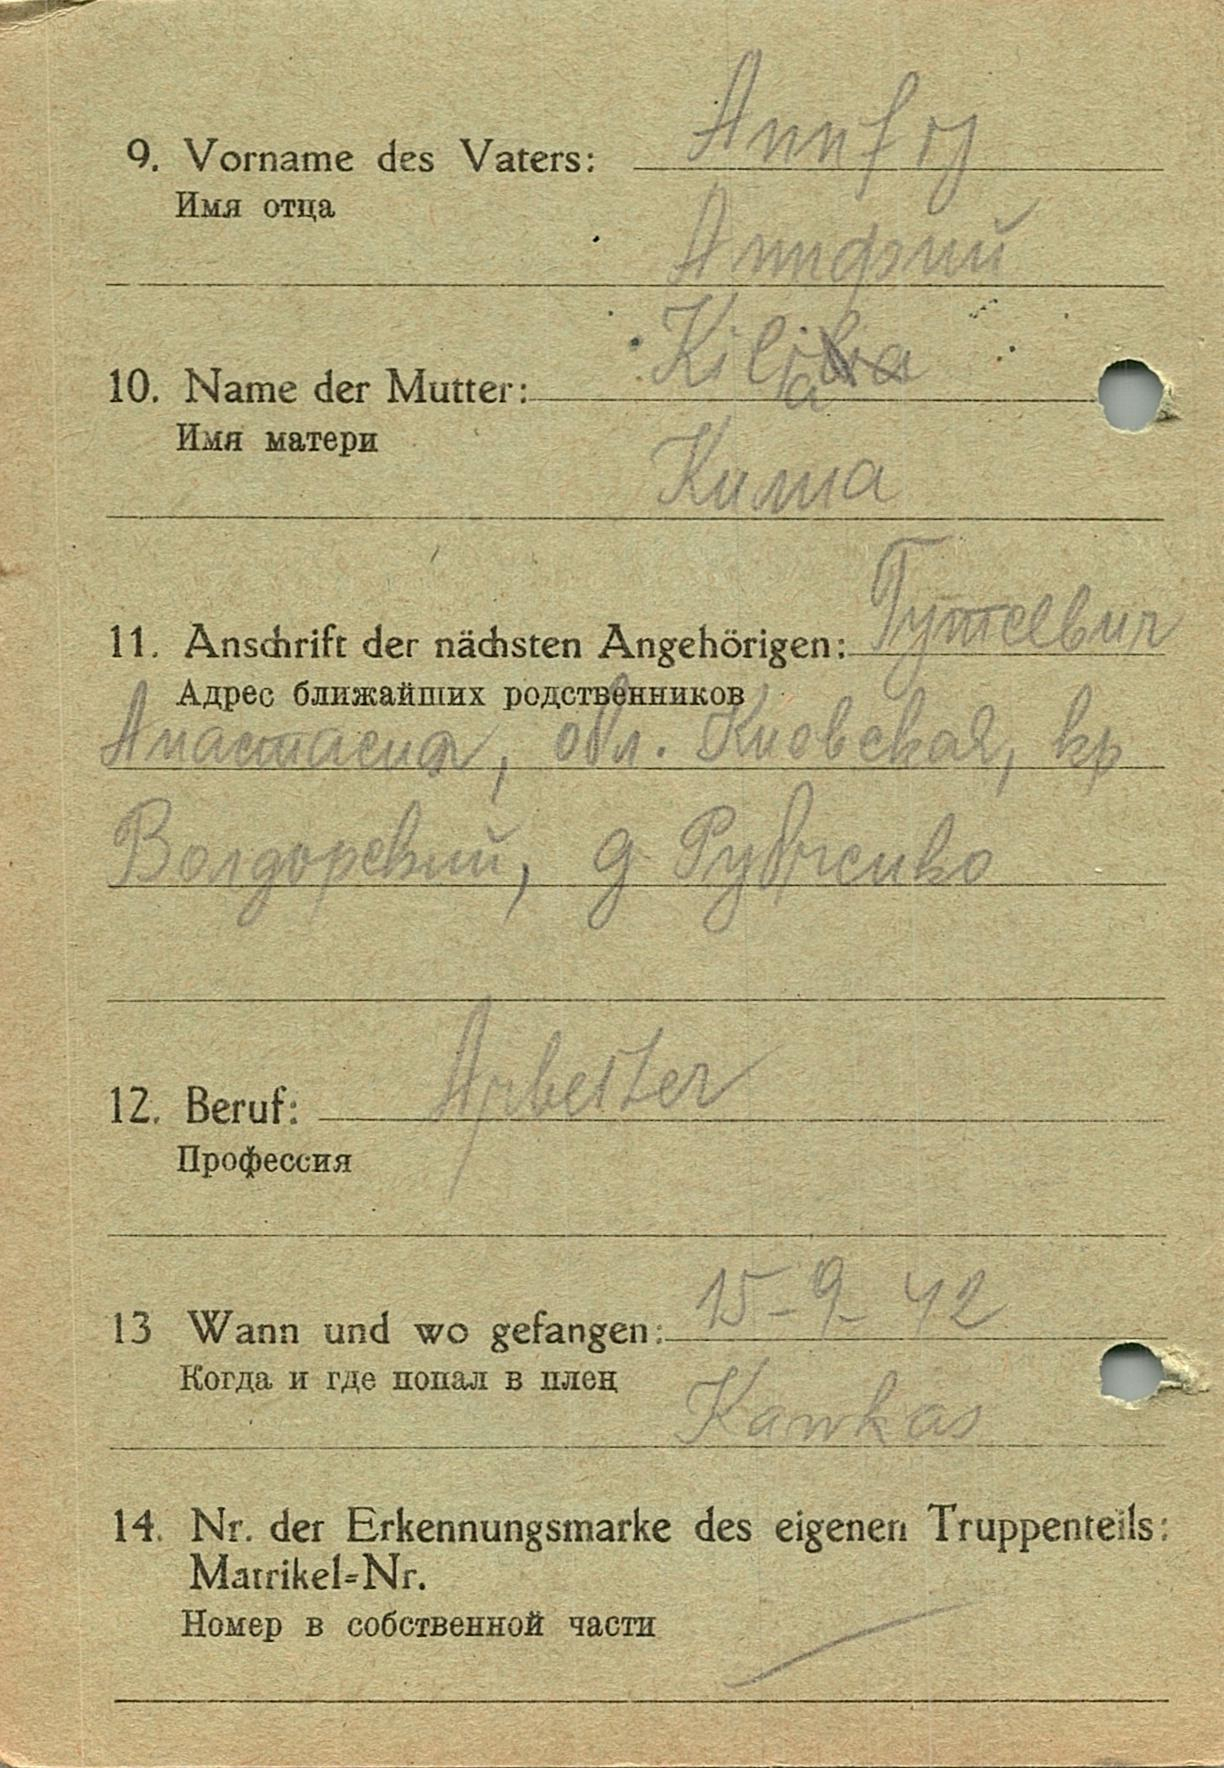 9. Vorname des Vaters: Annfrj
Имя отца
Аннфрий
10. Name der Mutter: Kilia
Имя матери
Килиа
11. Anschrift der nächsten Angehörigen:
Адрес ближайших родственников
Анастасия, обл. Киовская, кр
Волдорский, д Рубченко
12. Beruf: Arbeiter
Профессия
13 Wann und wo gefangen: 15-9-42
Когда и где попал в плен
Kawkas
14. Nr. der Erkennungsmarke des eigenen Truppenteils:
Matrikel=Nr.
Номер в собственной части